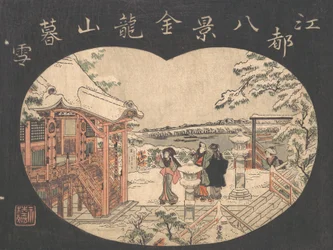 江都八景金龍山暮雪